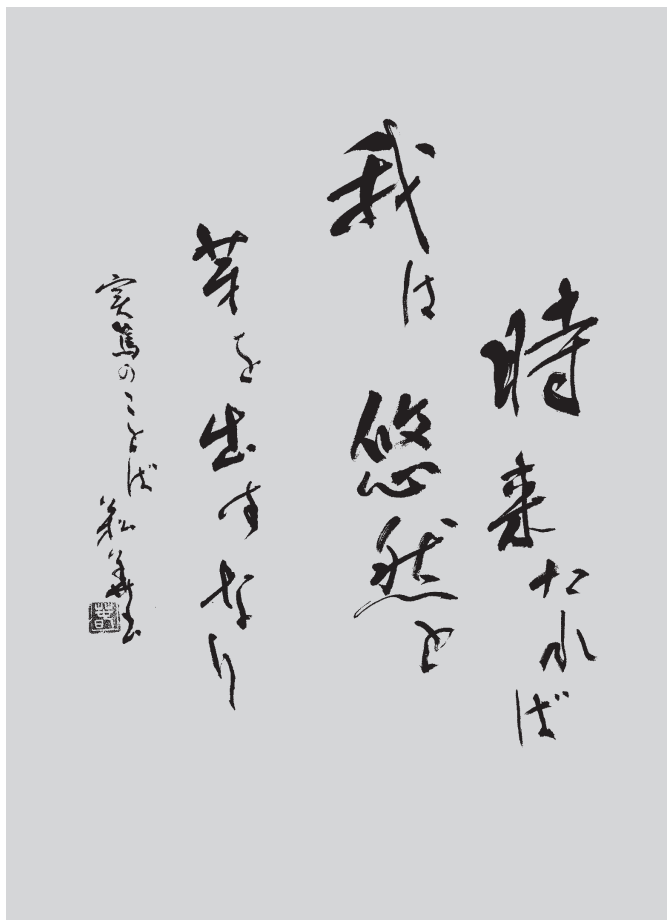 時来たれば
我は悠然と
芽を出すなり
実篤のことば